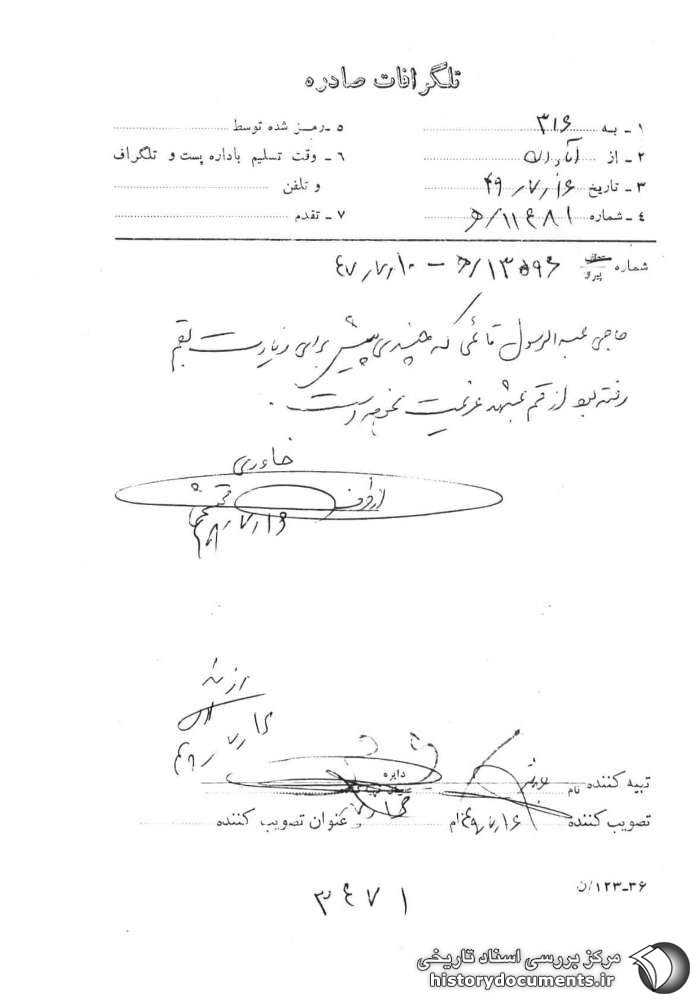 تلگرافات صادره
۱ - به ۳۱۶
۲ - از
۳ - تاریخ ۴۹/۷/۱۶
۴ - شماره ۱۱۴۸۱/ه
۵ - رمز شده توسط
۶ - وقت تسلیم باداره پست و تلگراف
و تلفن
۷ - تقدم
شماره پیرو
حاجی عبدالرسول قائمی که چندی پیش برای زیارت بقم
رفته بود از قم بمشهد عزیمت نموده است.
خاوری
از طرف
۱۶/۷/
از نظر
۱۶/۷/۴۹
تهیه کننده
نام
دایره
تصویب کننده
۱۶/۷/۴۹
نام
عنوان تصویب کننده
۳۶-۱۲۳/ن
۳۴۷۱
مرکز بررسی اسناد تاریخی
historydocuments.ir